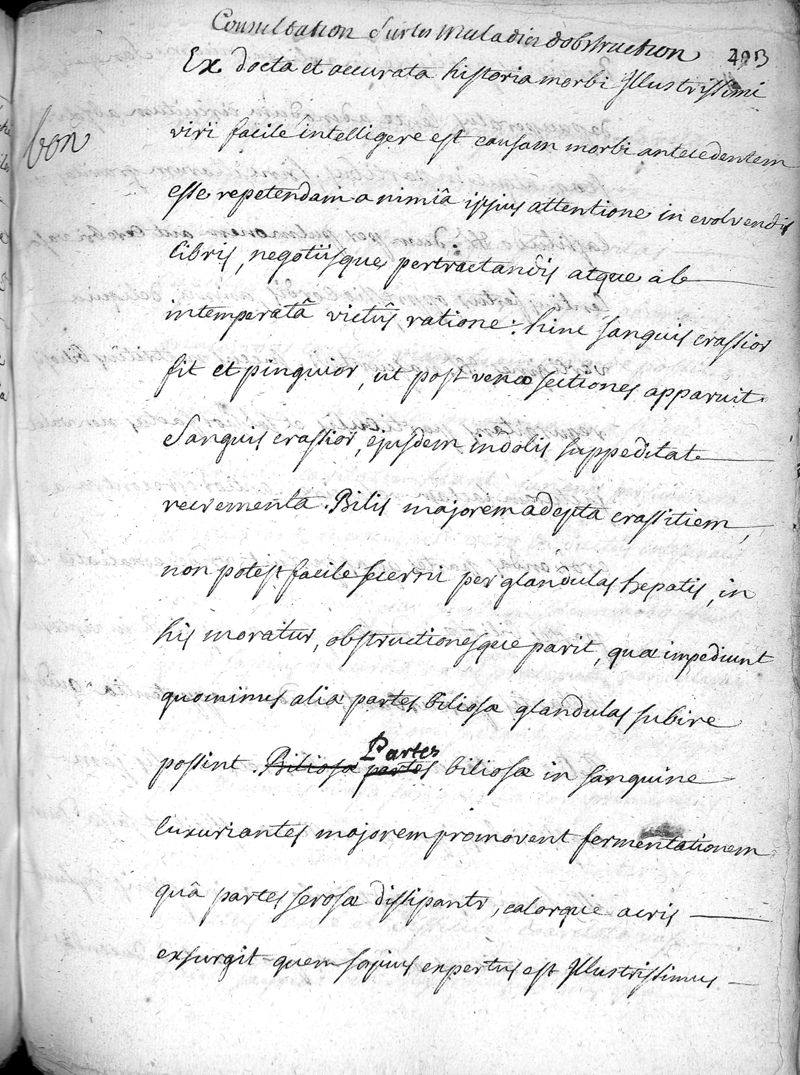 Consultation Sur les Maladies dobstruction 493
Ex docta et accurata historia morbi Illustrissimi
bon
viri facile intelligere est causam morbi antecedentem
esse repetendam a nimiâ ipsius attentione in evolvendis
libris, negotiisque pertractandis atque ab
intemperatâ victûs ratione: hinc sanguis crassior
fit et pinguior, ut post venæ sectiones apparuit.
Sanguis crassior, ejusdem indolis suppeditat
recrementa. Bilis majorem adepta crassitiem,
non potest facile secerni per glandulas hepatis, in
his moratur, obstructionesque parit, quæ impediunt
quominus aliæ partes biliosæ glandulas subire
possint. Biliosæ partes Partes biliosæ in sanguine
luxuriantes majorem promovent fermentationem
quâ partes serosæ dissipantr, calorque acris
exsurgit quem sæpius expertus est Illustrissimus